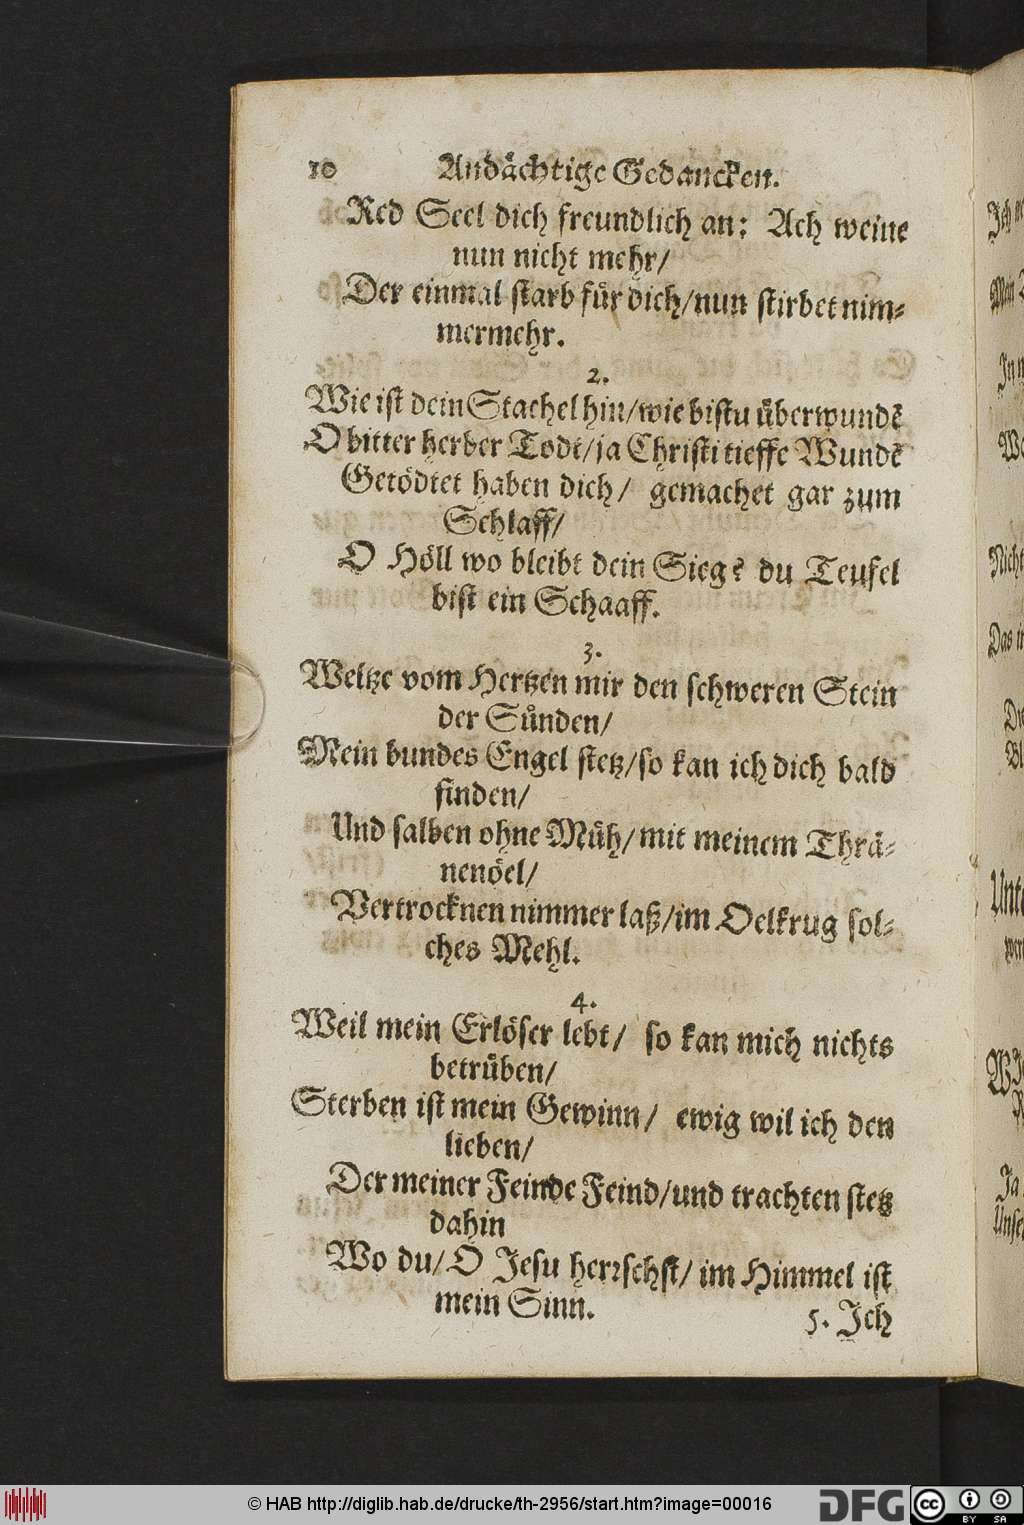 10 Andächtige Gedancken.
Red Seel dich freundlich an: Ach weine
nun nicht mehr/
Der einmal starb für dich/nun stirbet nim⸗
mermehr.
2.
Wie ist dein Stachel hin/wie bistu überwundē
O bitter herber Todt/ja Christi tieffe Wundē
Getödtet haben dich/ gemachet gar zum
Schlaff/
O Höll wo bleibt dein Sieg? du Teufel
bist ein Schaaff.
3.
Weltze vom Hertzen mir den schweren Stein
der Sünden/
Mein bundes Engel stetz/so kan ich dich bald
finden/
Und salben ohne Müh/mit meinem Thrä⸗
nenöel/
Vertrocknen nimmer laß/im Oelkrug sol⸗
ches Mehl.
4.
Weil mein Erlöser lebt/ so kan mich nichts
betrüben/
Sterben ist mein Gewinn/ ewig wil ich den
lieben/
Der meiner Feinde Feind/und trachten stetz
dahin
Wo du/ O Jesu herrschst/ im Himmel ist
mein Sinn.
5. Jch
Jch
Mein
Jn
Nicht
Das
Unte
Ja
Unse
© HAB http://diglib.hab.de/drucke/th-2956/start.htm?image=00016
DFG
cc
BY SA